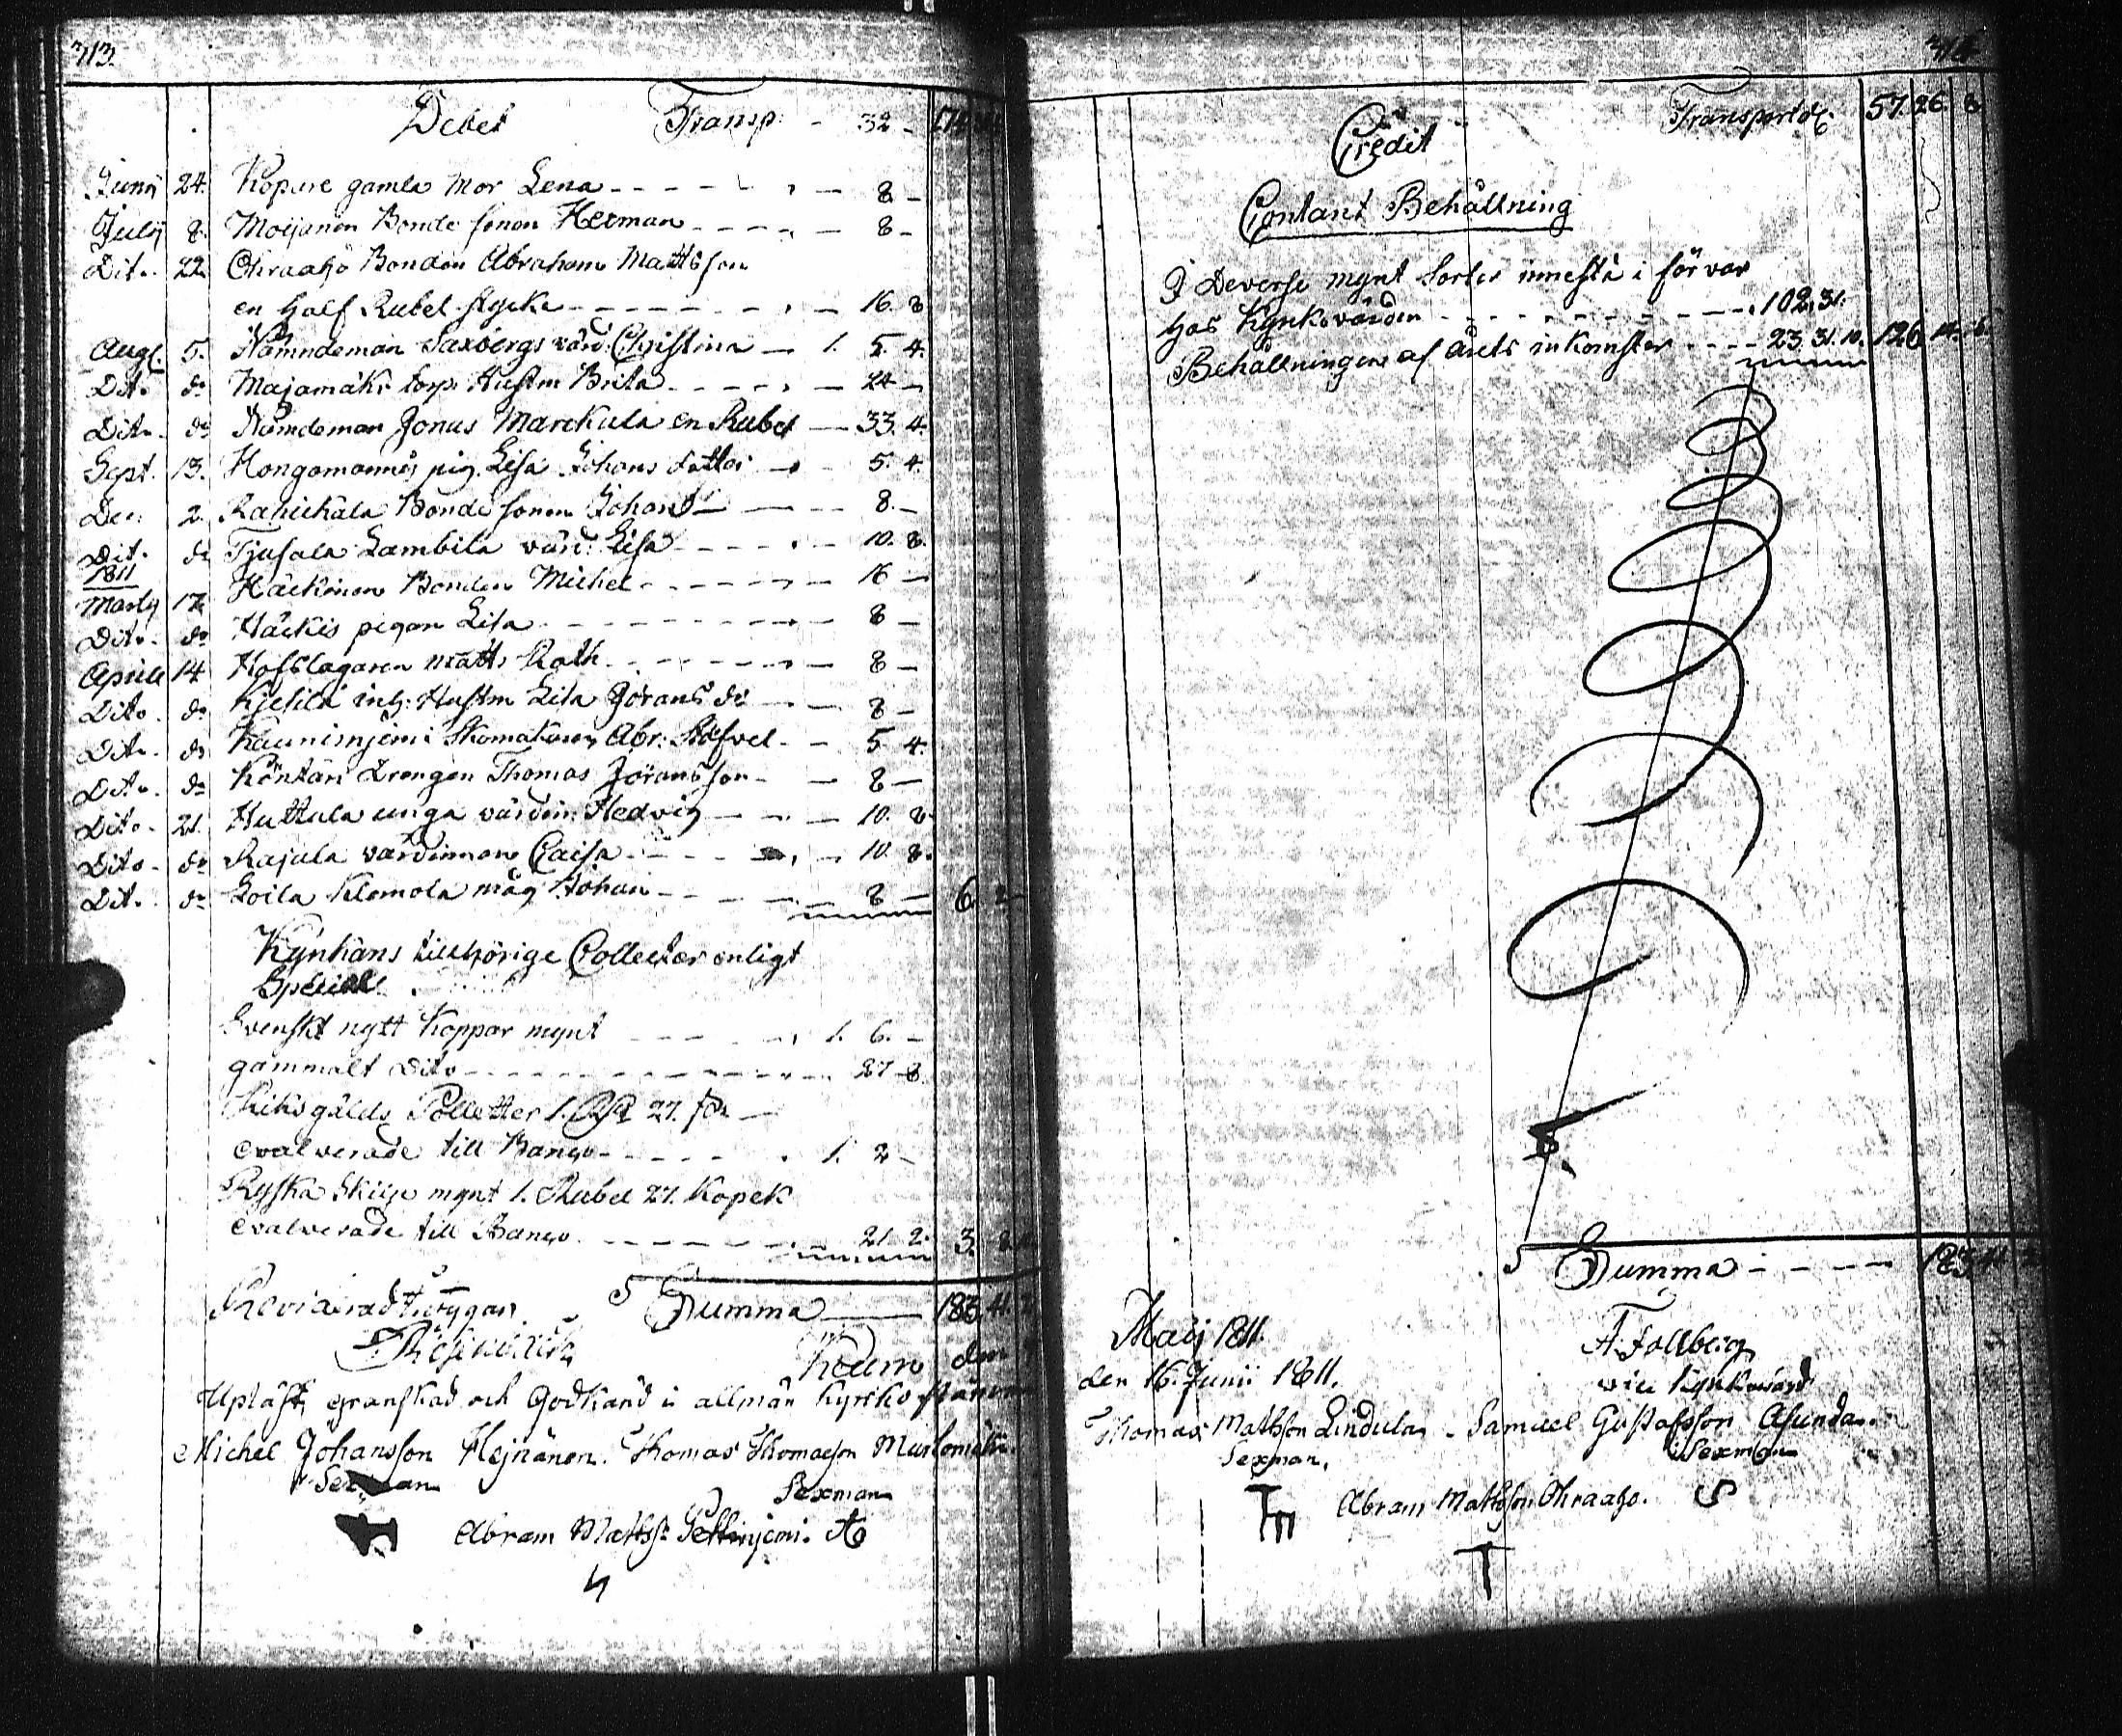 313.
Debet Transp. - 32 -
Junij 24. Kopure gamla Mor Lena - 8 -
July 8. Moijanen Bonde sonen Herman - 8 -
Dit. 22 Ohraaho Bonden Abraham Mattsson
en half Rubel stycke - 16. 8
Aug. 5. Nämndeman Saxbergs värd: Christina - 1. 5. 4.
Dit. do Majamäki torp: Hustru Brita - 24 -
Dito. do Nämdeman Jonas Marckula en Rubel - 33. 4.
Sept. 13. Hongamannis pig. Lisa Johans dotter - 5. 4.
Dec: 2. Bonde sonen Johan - 8. -
Dit. do Tjusala Lambila värd: Lisa - 10. 8.
1811
Marty 17. Häckinen Bonden Michel - 16 -
Dito. do Häckis pigan Lisa - 8 -
Aprill 14 Hofslagaren Matts Roth - 8 -
Dito. do inh: Hustru Lisa Jörans do - 8 -
Dito. do Kauninjemi Skomakaren Abr. - 5. 4.
Dito. do Köntäri Drengen Thomas Jöransson - 8 -
Dito. 21. Huttula unga värdin: Hedvig - 10. 8.
Dito. do Rajala värdinnan Caisa - 10. 8.
Dit. do Loila Klemola måg Johan - 8 - 6. 2.
Kyrkans tillhörige Collecter enligt
Special
Svenskt nytt Koppar mynt - 1. 6. -
gammalt Dito - 27. 8.
Riksgälds Polletter 1. 27.
evalverade till Banco - 1. 2 -
Ryska Skilje mynt 1. Rubel 27. Kopek
evalverade till Banco - 21. 2. 3.
Summa 183. 41. 2
den
Upläst, granskad och Godkänd i allmän Kyrko
Michel Johansson Hejnänen. Thomas Thomasson
Sexman Sexman
Abram Matss.
314
Credit Transporterdt. 57. 26. 8
Contant Behållning
I Deverse mynt Sorter innestå i förvar
hos Kyrkovärden - 102. 31.
Behållningen af årets inkomster - 23. 31. 10. 126. 14. 6.
Summa - 183. 41. 2
Maij 1811.
den 16. Junii 1811.
Thomas Mattsson Lindula. Samuel Gustafsson Asunda.
Sexman. Sexman
Abram Mattsson Ohraaho.